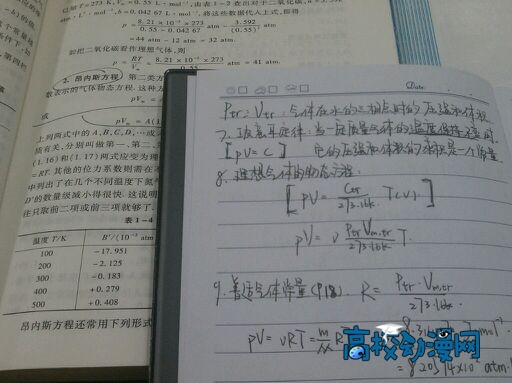 已知 T=273 K, Vm=0.55 L·mol⁻¹, 由表1-2查出对于二氧化碳,
atm·L²·mol⁻², b=0.042 67 L·mol⁻¹, 将这些数据代入上式, 即得
p = 8.21×10⁻²×273 / 0.55-0.042 67 atm - 3.592 / (0.55)² atm
=44 atm-12 atm=32 atm.
如把二氧化碳看作理想气体, 则
p = RT/Vm = 8.21×10⁻²×273 / 0.55 atm = 41 atm.
2. 昂内斯方程 第二类方
数表示的气体物态方程. 这种方
pVm=
或
pVm=A(1
上列两式中的 A, B, C, D, …或
质有关, 分别叫做第一、第二、
(1.16)和(1.17)两式应变为理
=RT. 其他的位力系数则需在不
中列出了在几个不同温度下氮
D′的数量级减小得很快. 这说明
往只取前二项或前三项就够了.
表 1-4
温度 T/K B′/(10⁻³ atm
100 -17.951
200 -2.125
300 -0.183
400 +0.279
500 +0.408
昂内斯方程还常用下列形式
Date
Ptr: Vtr: 气体在水的三相点时的压强和体积
7. 玻意耳定律: 当一定质量气体的温度保持不变时
[pV=C] 它的压强和体积的乘积是一个常量
8. 理想气体的物态方程.
[pV = Ctr/273.16k T(V).]
pV = ν PtrVm,tr/273.16k T.
9. 普适气体常量 (P18). R = Ptr·Vm,tr/273.16k.
pV = νRT = m/M R
高校动漫网